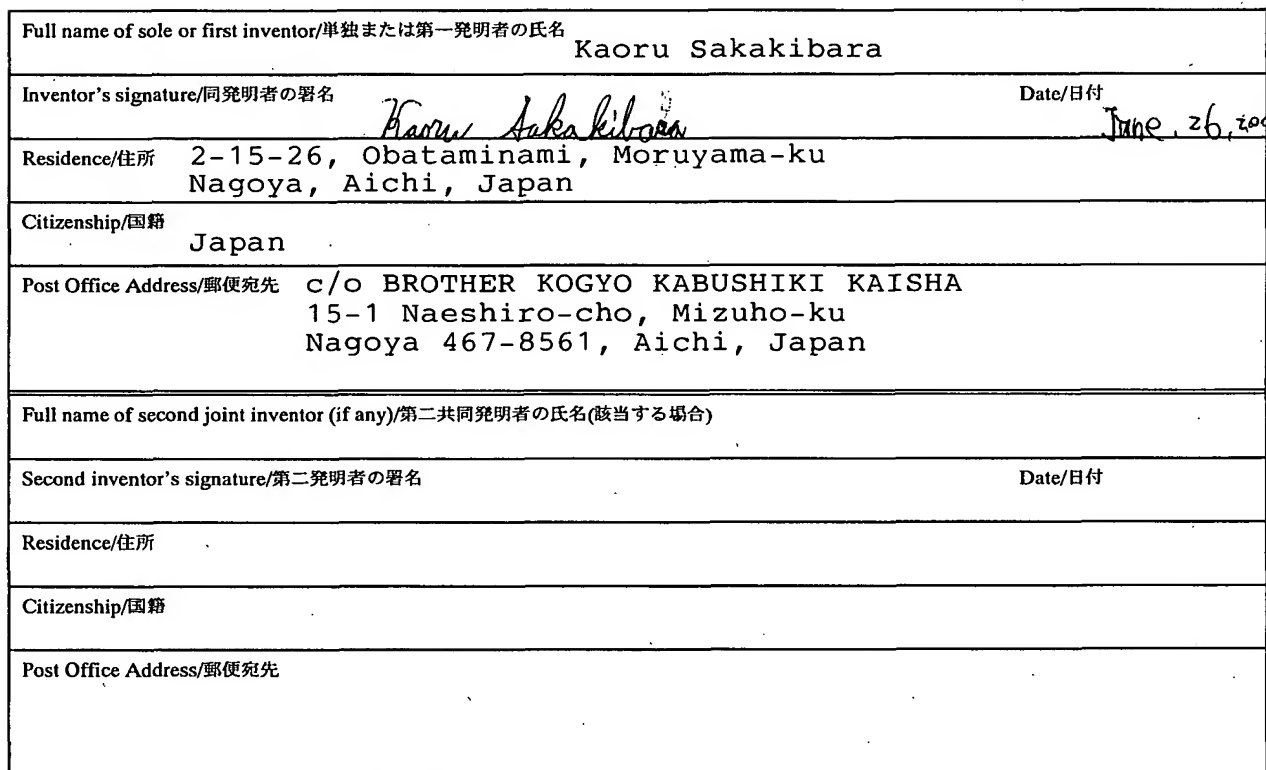 Full name of sole or first inventor/単独または第一発明者の氏名
Kaoru Sakakibara
Inventor's signature/同発明者の署名 Kaoru Sakakibara Date/日付 June, 26,
Residence/住所 2-15-26, Obataminami, Moruyama-ku
Nagoya, Aichi, Japan
Citizenship/国籍
Japan
Post Office Address/郵便宛先 c/o BROTHER KOGYO KABUSHIKI KAISHA
15-1 Naeshiro-cho, Mizuho-ku
Nagoya 467-8561, Aichi, Japan
Full name of second joint inventor (if any)/第二共同発明者の氏名(該当する場合)
Second inventor's signature/第二発明者の署名 Date/日付
Residence/住所
Citizenship/国籍
Post Office Address/郵便宛先